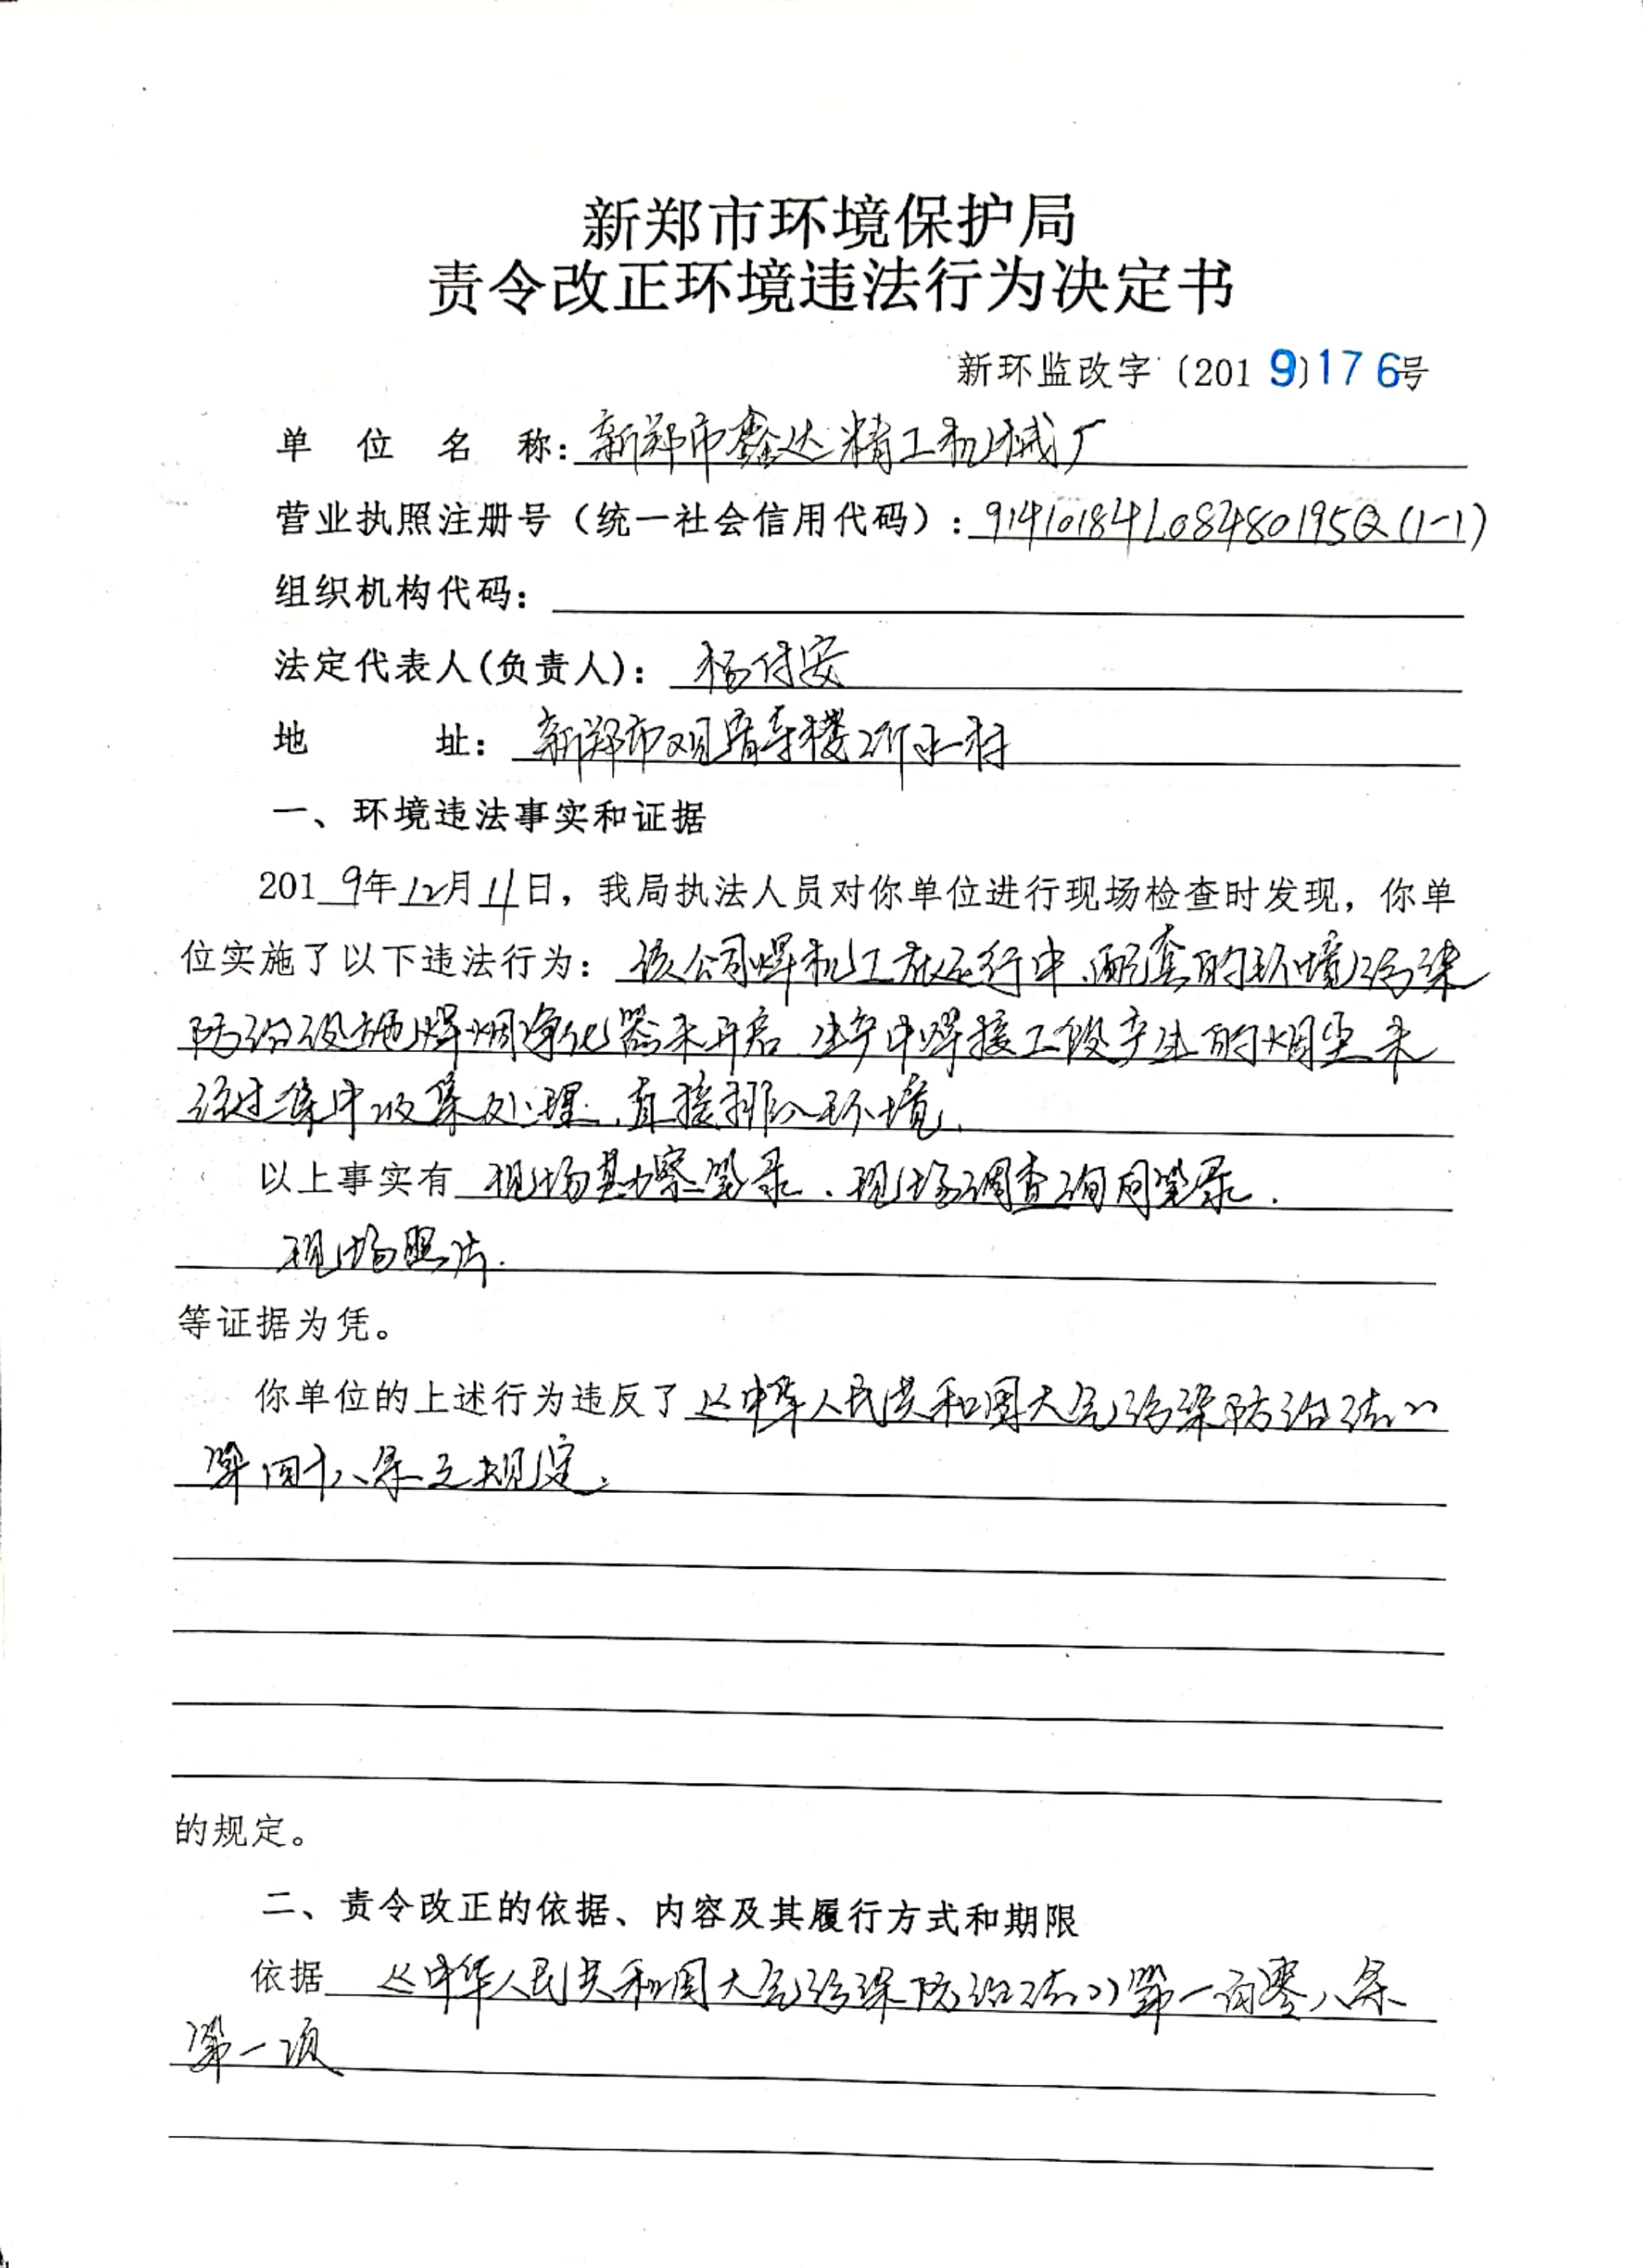 新郑市环境保护局
责令改正环境违法行为决定书
新环监改字〔2019〕176号
单位名称：新郑市鑫达精工机械厂
营业执照注册号（统一社会信用代码）：91410184L08480195Q(1-1)
组织机构代码：
法定代表人(负责人)：杨付安
地址：新郑市观音寺楼
一、环境违法事实和证据
2019年12月11日，我局执法人员对你单位进行现场检查时发现，你单
位实施了以下违法行为：该公司焊机正在运行中、配套的环境污染
防治设施焊烟净化器未开启、生产中焊接工段产生的烟尘未
经过集中收集处理、直接排入环境。
以上事实有现场勘察笔录、现场调查询问笔录、
现场照片.
等证据为凭。
你单位的上述行为违反了《中华人民共和国大气污染防治法》
第四十八条之规定.
的规定。
二、责令改正的依据、内容及其履行方式和期限
依据《中华人民共和国大气污染防治法》第一百零八条
第一项